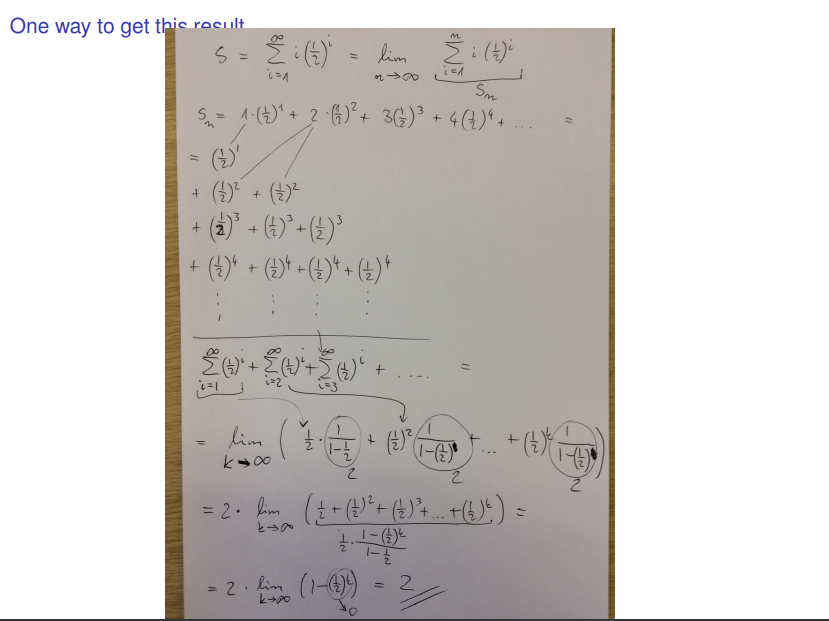 One way to get this result
S = ∑_{i=1}^{∞} i (1/2)^i = lim_{n→∞} ∑_{i=1}^{n} i · (1/2)^i
S_n
S_n = 1·(1/2)^1 + 2·(1/2)^2 + 3(1/2)^3 + 4(1/2)^4 + ... =
= (1/2)^1
+ (1/2)^2 + (1/2)^2
+ (1/2)^3 + (1/2)^3 + (1/2)^3
+ (1/2)^4 + (1/2)^4 + (1/2)^4 + (1/2)^4
⋮ ⋮ ⋮ ⋮
∑_{i=1}^{∞} (1/2)^i + ∑_{i=2}^{∞} (1/2)^i + ∑_{i=3}^{∞} (1/2)^i + .... =
= lim_{k→∞} ( 1/2 · 1/(1-1/2) + (1/2)^2 1/(1-(1/2)) + ... + (1/2)^k 1/(1-(1/2)) )
2 2 2
= 2 · lim_{k→∞} ( 1/2 + (1/2)^2 + (1/2)^3 + ... + (1/2)^k ) =
1/2 · (1-(1/2)^k)/(1-1/2)
= 2 · lim_{k→∞} (1-(1/2)^k) = 2
0